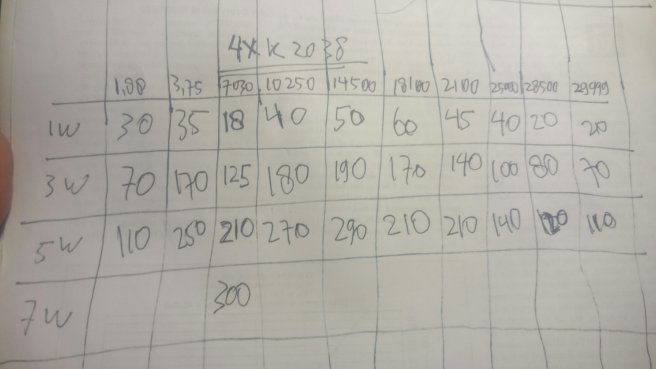 4X K2038
1,88 3,75 7030 10250 14500 18100 2100 25000 28500 29999
1W 30 35 18 40 50 60 45 40 20 20
3W 70 170 125 180 190 170 140 100 80 70
5W 110 250 210 270 290 210 210 140 110
7W 300